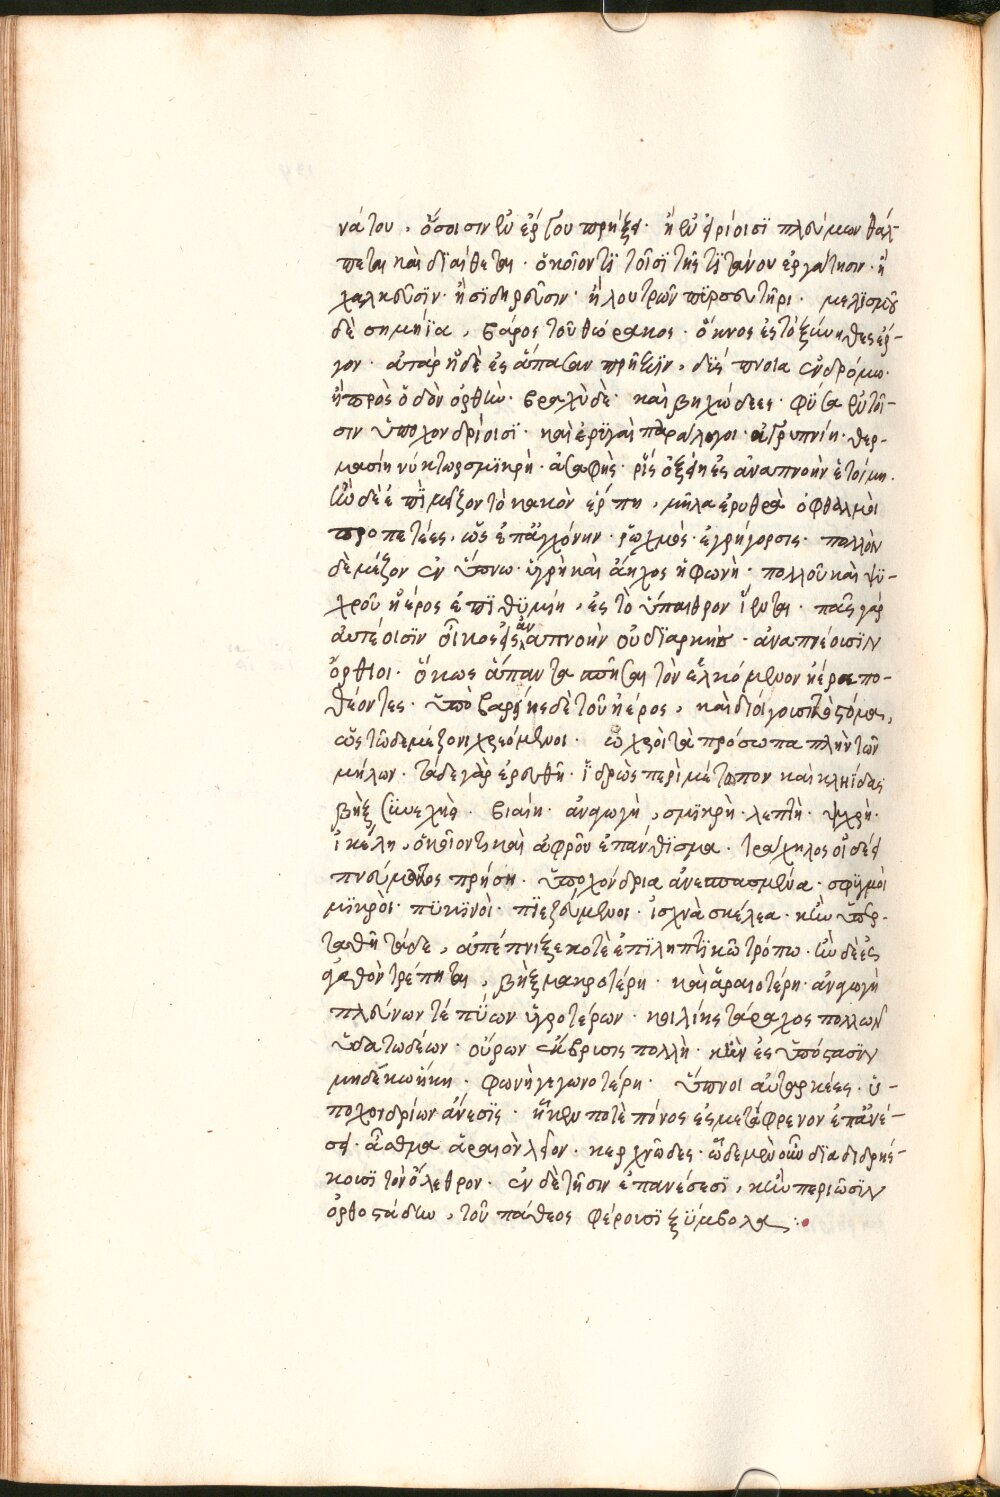 νάτου, ὅσοισιν ἐν ἔργου πρήξει· ἢ ἐν ἐρίοισι πλεύμων θάλ-
πεται καὶ διαίθεται· ὁκοῖόν τι τοῖσι τῆς τιτάνου ἐργάτησιν· ἢ
χαλκεῦσιν· ἢ σιδηρεῦσιν· ἢ λουτρῶν πυρσευτῆρι· μελισμοῦ
δὲ σημήϊα, βάρος τοῦ θώρακος· ὄκνος ἐς τὸ ξύνηθες ἔρ-
γον· ἀτὰρ ἠδὲ ἐς ἅπασαν πρῆξιν, δύσπνοια ἐν δρόμῳ·
ἢ πρὸς ὁδὸν ὀρθίω· βραχὺ δὲ· καὶ βηχώδεες· φῦσα ἐν τοῖ-
σιν ὑποχονδρίοισι· καὶ ἐρυγαὶ παράλογοι· ἀγρυπνίη· θερ-
μασίη νύκτωρ σμικρὴ· ἀσαφὴς· ῥὶς ὀξείη ἐς ἀναπνοὴν ἑτοίμη.
ἢν δὲ ἐπὶ μέζον τὸ κακὸν ἕρπη, μῆλα ἐρυθρὰ ὀφθαλμοὶ
προπετέες, ὡς ἐπ' ἀγχόνην· ῥωχμὸς· ἐγρήγορσις· πολλὸν
δὲ μέζον ἐν ὕπνω· ὑγρὴ καὶ ἄηχος ἡ φωνὴ· πολλοῦ καὶ ψυ-
χροῦ ἠέρος ἐπιθυμίη, ἐς τὸ ὕπαιθρον ἵενται· πᾶς γὰρ
αὐτέοισιν οἶκος ἐς ἀναπνοὴν οὐ διαρκὴς· ἀναπνέοισιν
ὄρθιοι· ὅκως ἅπαντα σπῆσαι τὸν ἑλκόμενον ἠέρα πο-
θέοντες· ὑπὸ βαρείης δὲ τοῦ ἠέρος, καὶ διοίγοισι τὸ στόμα,
ὡς τῶδε μέζονι χρεόμενοι· ὠχροὶ τὰ πρόσωπα πλὴν τῶν
μήλων· τάδε γὰρ ἐρευθῆ· ἱδρὼς περὶ μέτωπον καὶ κληίδας
βὴξ ξυνεχὴς· βιαίη· ἀναγωγὴ, σμικρὴ· λεπτὴ· ψυχρὴ·
ἰκέλη, ὁκοῖόν τι καὶ ἀφροῦ ἐπάνθισμα· τράχηλος οἰδέει
πνεύματος πρήσει· ὑποχόνδρια ἀνεσπασμένα· σφυγμοὶ
μικροὶ· πυκινοὶ· πιεζεύμενοι· ἰσχνὰ σκέλεα· κἢν ὑπερ-
ταθῆ τάδε, ἀπέπνιξε κοτὲ ἐπιληπτικῶ τρόπω· ἢν δὲ ἐς
ἀγαθὸν τρέπηται, βὴξ μακροτέρη· καὶ ἀραιοτέρη· ἀναγωγὴ
πλεύνων τὲ πύων ὑγροτέρων· κοιλίης τάραχος πολλῶν
ὑδατωδέων· οὔρων ἔκκρισις πολλὴ· κἢν ἐς ὑπόστασιν
μηδέκω ἥκη· φωνὴ γεγωνοτέρη· ὕπνοι αὐταρκέες· ὑ-
ποχονδρίων ἄνεσις· ἥκεν ποτὲ πόνος ἐς μετάφρενον ἐπ' ἀνέ-
σει· ἆσθμα ἀραιὸν λεῖον· κερχνῶδες· ὧδε μὲν οὖν διαδιδρήσ-
κοισι τὸν ὄλεθρον· ἐν δὲ τῆσιν ἐπανέσεσι, κἢν περιῶσιν
ὀρθοστάδην, τοῦ πάθεος φέροισι ξύμβολα: